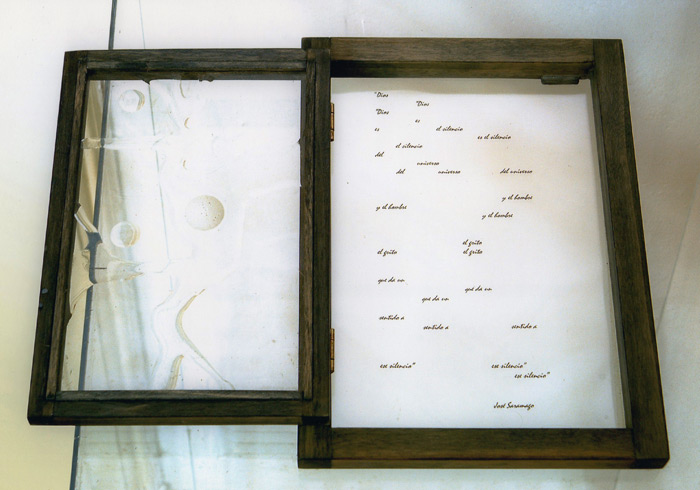 "Dios
"Dios
"Dios
es
es el silencio
es el silencio
el silencio
del
universo
del universo del universo
y el hombre
y el hombre
y el hombre
el grito
el grito el grito
que da un
que da un
que da un
sentido a
sentido a sentido a
ese silencio" ese silencio"
ese silencio"
José Saramago